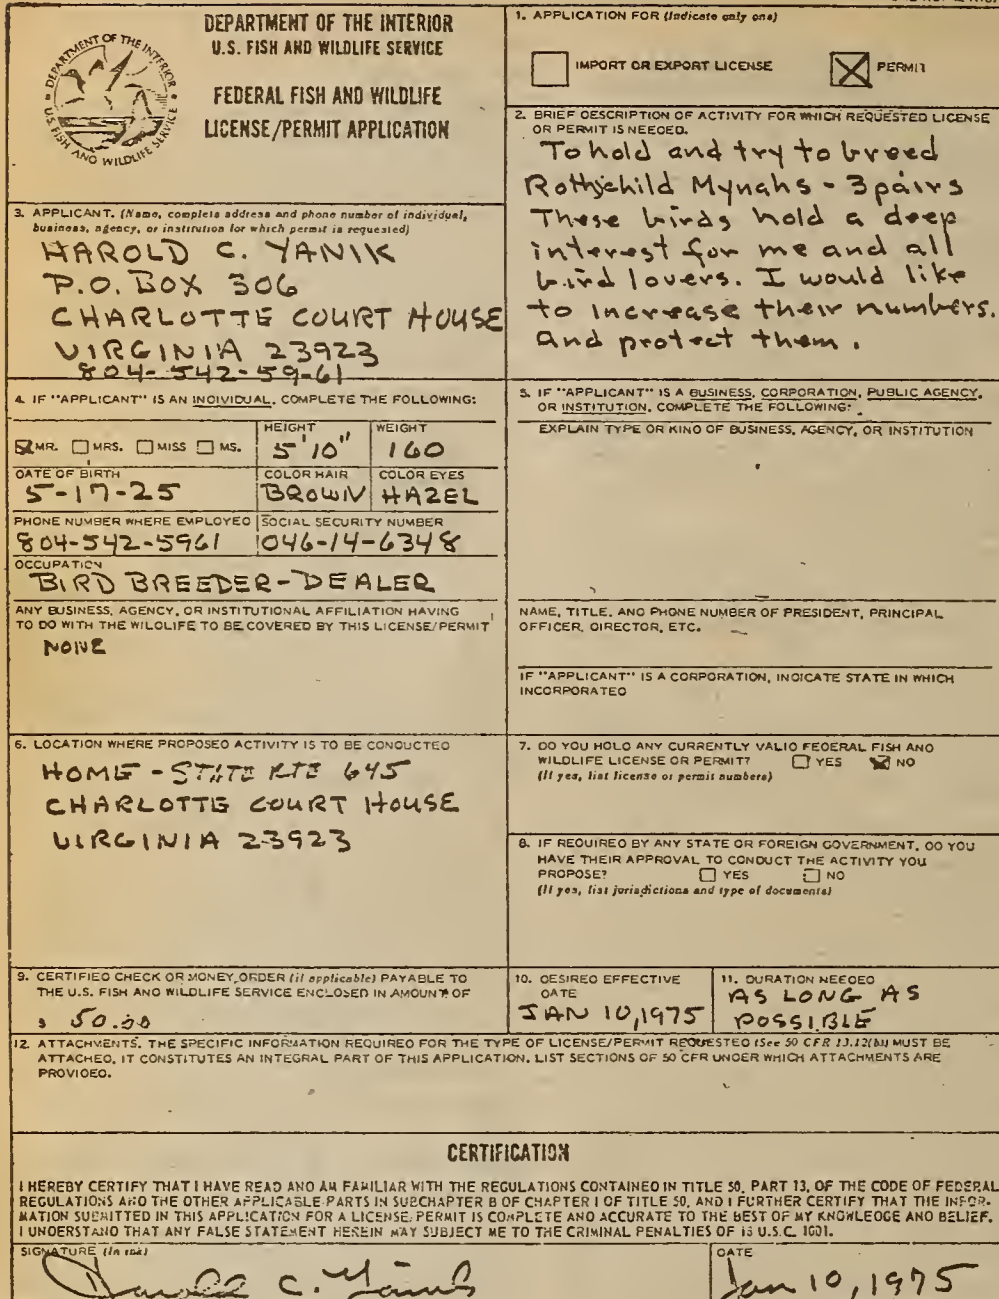 DEPARTMENT OF THE INTERIOR
U.S. FISH AND WILDLIFE SERVICE
FEDERAL FISH AND WILDLIFE
LICENSE/PERMIT APPLICATION
DEPARTMENT OF THE INTERIOR
U.S. FISH AND WILDLIFE SERVICE
1. APPLICATION FOR (Indicate only one)
IMPORT OR EXPORT LICENSE
PERMIT
2. BRIEF DESCRIPTION OF ACTIVITY FOR WHICH REQUESTED LICENSE
OR PERMIT IS NEEDED.
To hold and try to breed
Rothschild Mynahs - 3 pairs
These birds hold a deep
interest for me and all
bird lovers. I would like
to increase their numbers.
And protect them.
3. APPLICANT. (Name, complete address and phone number of individual,
business, agency, or institution for which permit is requested)
HAROLD C. YANIK
P.O. BOX 306
CHARLOTTE COURT HOUSE
VIRGINIA 23923
804-542-59-61
4. IF "APPLICANT" IS AN INDIVIDUAL, COMPLETE THE FOLLOWING:
MR. MRS. MISS MS.
HEIGHT
5'10"
WEIGHT
160
DATE OF BIRTH
5-17-25
COLOR HAIR
BROWN
COLOR EYES
HAZEL
PHONE NUMBER WHERE EMPLOYED
804-542-5961
SOCIAL SECURITY NUMBER
046-14-6348
OCCUPATION
BIRD BREEDER-DEALER
ANY BUSINESS, AGENCY, OR INSTITUTIONAL AFFILIATION HAVING
TO DO WITH THE WILDLIFE TO BE COVERED BY THIS LICENSE/PERMIT
NONE
5. IF "APPLICANT" IS A BUSINESS, CORPORATION, PUBLIC AGENCY,
OR INSTITUTION, COMPLETE THE FOLLOWING:
EXPLAIN TYPE OR KIND OF BUSINESS, AGENCY, OR INSTITUTION
NAME, TITLE, AND PHONE NUMBER OF PRESIDENT, PRINCIPAL
OFFICER, DIRECTOR, ETC.
IF "APPLICANT" IS A CORPORATION, INDICATE STATE IN WHICH
INCORPORATED
6. LOCATION WHERE PROPOSED ACTIVITY IS TO BE CONDUCTED
HOME - STATE RTE 645
CHARLOTTE COURT HOUSE
VIRGINIA 23923
7. DO YOU HOLD ANY CURRENTLY VALID FEDERAL FISH AND
WILDLIFE LICENSE OR PERMIT? YES NO
(If yes, list license or permit numbers)
8. IF REQUIRED BY ANY STATE OR FOREIGN GOVERNMENT, DO YOU
HAVE THEIR APPROVAL TO CONDUCT THE ACTIVITY YOU
PROPOSE? YES NO
(If yes, list jurisdictions and type of documents)
9. CERTIFIED CHECK OR MONEY ORDER (if applicable) PAYABLE TO
THE U.S. FISH AND WILDLIFE SERVICE ENCLOSED IN AMOUNT OF
$ 50.00
10. DESIRED EFFECTIVE
DATE
JAN 10, 1975
11. DURATION NEEDED
AS LONG AS
POSSIBLE
12. ATTACHMENTS. THE SPECIFIC INFORMATION REQUIRED FOR THE TYPE OF LICENSE/PERMIT REQUESTED (See 50 CFR 13.12(b)) MUST BE
ATTACHED, IT CONSTITUTES AN INTEGRAL PART OF THIS APPLICATION. LIST SECTIONS OF 50 CFR UNDER WHICH ATTACHMENTS ARE
PROVIDED.
CERTIFICATION
I HEREBY CERTIFY THAT I HAVE READ AND AM FAMILIAR WITH THE REGULATIONS CONTAINED IN TITLE 50, PART 13, OF THE CODE OF FEDERAL
REGULATIONS AND THE OTHER APPLICABLE PARTS IN SUBCHAPTER B OF CHAPTER I OF TITLE 50, AND I FURTHER CERTIFY THAT THE INFOR-
MATION SUBMITTED IN THIS APPLICATION FOR A LICENSE/PERMIT IS COMPLETE AND ACCURATE TO THE BEST OF MY KNOWLEDGE AND BELIEF.
I UNDERSTAND THAT ANY FALSE STATEMENT HEREIN MAY SUBJECT ME TO THE CRIMINAL PENALTIES OF 18 U.S.C. 1001.
SIGNATURE (In ink)
Harold C. Yanik
DATE
Jan 10, 1975